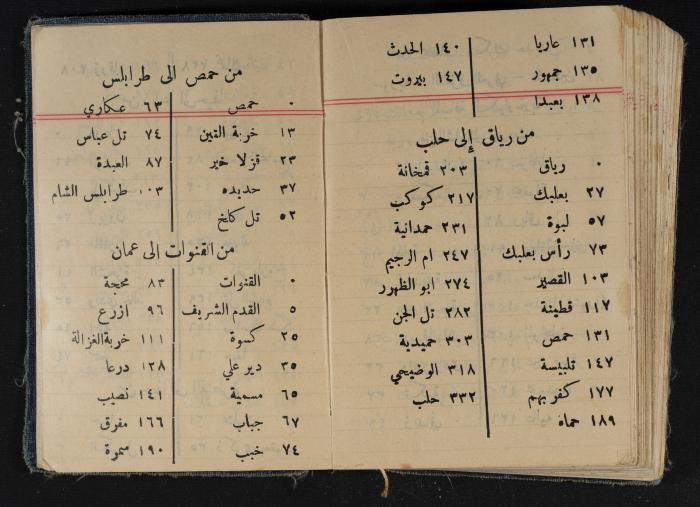 ١٣١ عاريا ١٤٠ الحدث
١٣٥ جمهور ١٤٧ بيروت
١٣٨ بعبدا
من رياق إلى حلب
٠ رياق ٢٠٣ قمخانة
٢٧ بعلبك ٢١٧ كوكب
٥٧ لبوة ٢٣١ حمدانية
٧٣ رأس بعلبك ٢٤٧ ام الرجيم
١٠٣ القصير ٢٧٤ ابو الظهور
١١٧ قطينة ٢٨٢ تل الجن
١٣١ حمص ٣٠٣ حميدية
١٤٧ تلبيسة ٣١٨ الوضيحي
١٧٧ كفر بهم ٣٣٢ حلب
١٨٩ حماه
من حمص الى طرابلس
٠ حمص ٦٣ عكاري
١٣ خربة التين ٧٤ تل عباس
٢٣ قزلا خير ٨٧ العبدة
٣٧ حديده ١٠٣ طرابلس الشام
٥٢ تل كلخ
من القنوات الى عمان
٠ القنوات ٨٣ محجة
٥ القدم الشريف ٩٦ ازرع
٢٥ كسوة ١١١ خربة الغزالة
٣٥ دير علي ١٢٨ درعا
٦٥ مسمية ١٤١ نصيب
٦٧ جباب ١٦٦ مفرق
٧٤ خبب ١٩٠ سمرة